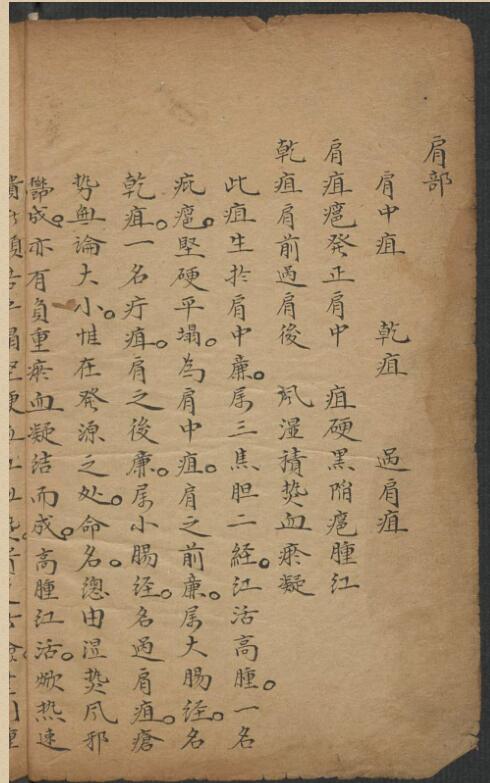 肩部
肩中疽 乾疽 過肩疽
肩疽瘪發正肩中 疽硬黑陷瘪腫江
乾疽肩前過肩後 風湿積𤍠血瘀凝
此疽生扵肩中廉。属三焦胆二経。江活高腫。一名
疪瘪。堅硬平塌。為肩中疽。肩之前廉。属大腸経。名
乾疽。一名疔疽。肩之後廉。属小腸経。名過肩疽。瘡
势無論大小。惟在發源之处。命名。總由湿𤍠風邪
欝成。亦有負重瘀血凝结而成。高腫江活。焮热速